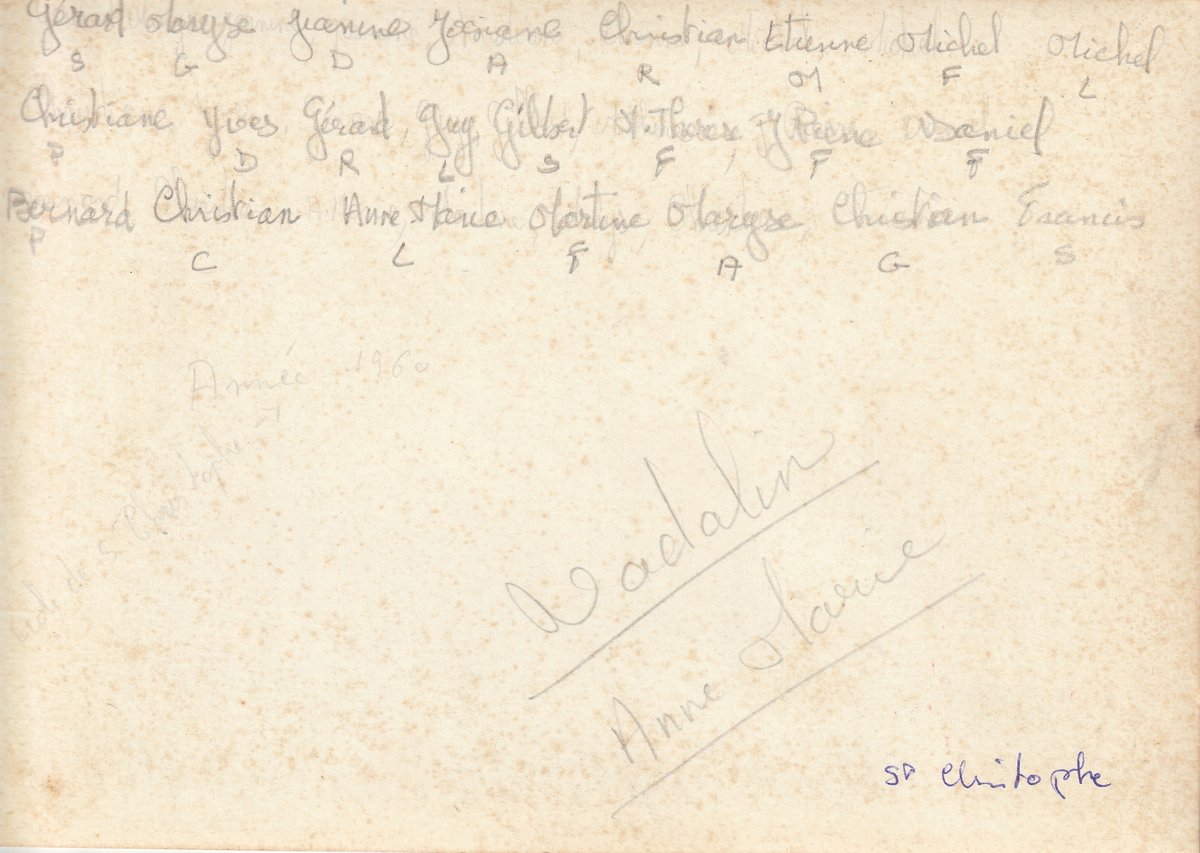 Gérard Maryse Jeanine Josiane Christian Etienne Michel Michel
S G D A R M F L
Christiane Yves Gérard Guy Gilbert M. Therese J Pierre Daniel
P D R L S F F F
Bernard Christian Anne Marie Martine Maryse Christian Francis
P C L F A G S
Année 1960
de St Christophe
Nadalin
Anne Marie
St Christophe